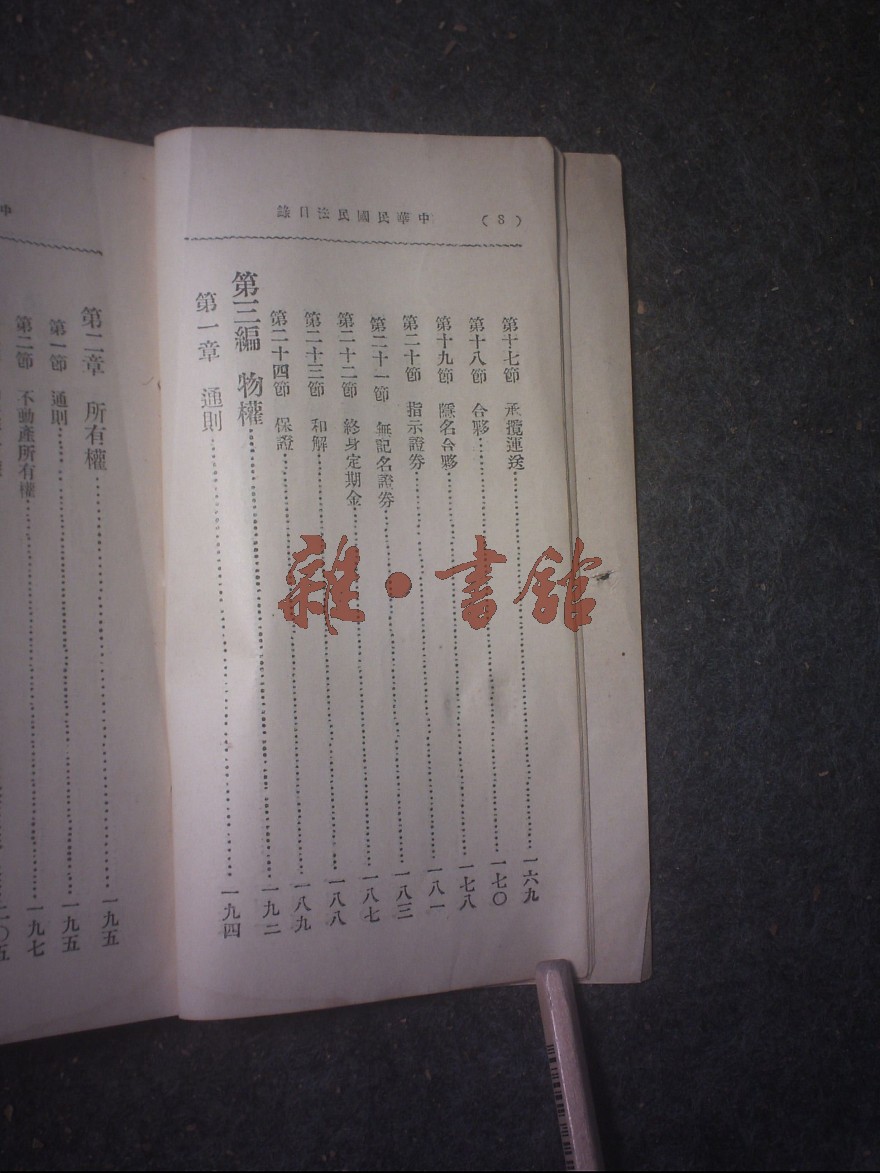 (8) 中華民國民法目錄
第十七節 承攬運送……一六九
第十八節 合夥……一七〇
第十九節 隱名合夥……一七八
第二十節 指示證券……一八一
第二十一節 無記名證券……一八三
第二十二節 終身定期金……一八七
第二十三節 和解……一八八
第二十四節 保證……一八九
第三編 物權……一九二
第一章 通則……一九四
中
第二章 所有權……一九五
第一節 通則……一九五
第二節 不動產所有權……一九七
雜·書館